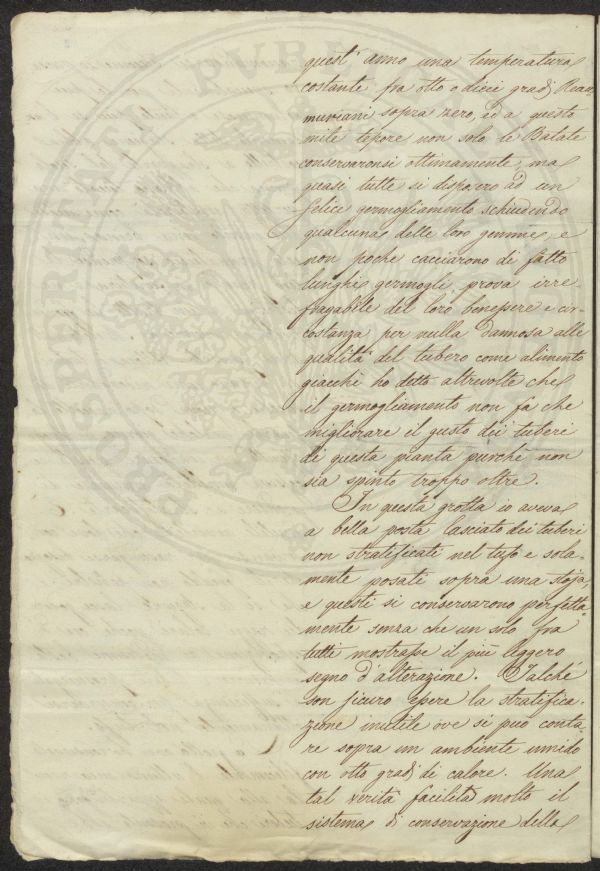 quest' anno una temperatura
costante fra otto o dieci gradj Reau-
muriani sopra zero, ed a questo
mite tepore non solo le Batate
conservaronsi ottimamente, ma
quasi tutte si disposero ad un
felice germogliamento schiudendo
qualcuna delle loro gemme, e
non poche cacciarono di fatto
lunghi germogli prova irre
fragabile del loro benessere e cir-
costanza per nulla dannosa alle
qualità del tubero come alimento
giacchè ho detto altrevolte che
il germogliamento non fa che
migliorare il gusto dei tuberi
di questa pianta purchè non
sia spinto troppo oltre.
In questa grotta io aveva
a bella posta lasciato dei tuberi
non stratificati nel tufo e sola-
mente posati sopra una stoja
e questi si conservarono perfetta-
mente senza che un solo fra
tutti mostrasse il più leggero
segno d'alterazione. Talchè
son sicuro essere la stratifica-
zione inutile ove si può conta-
re sopra un ambiente umido
con otto gradj di calore. Una
tal verità facilità molto il
sistema di conservazione della